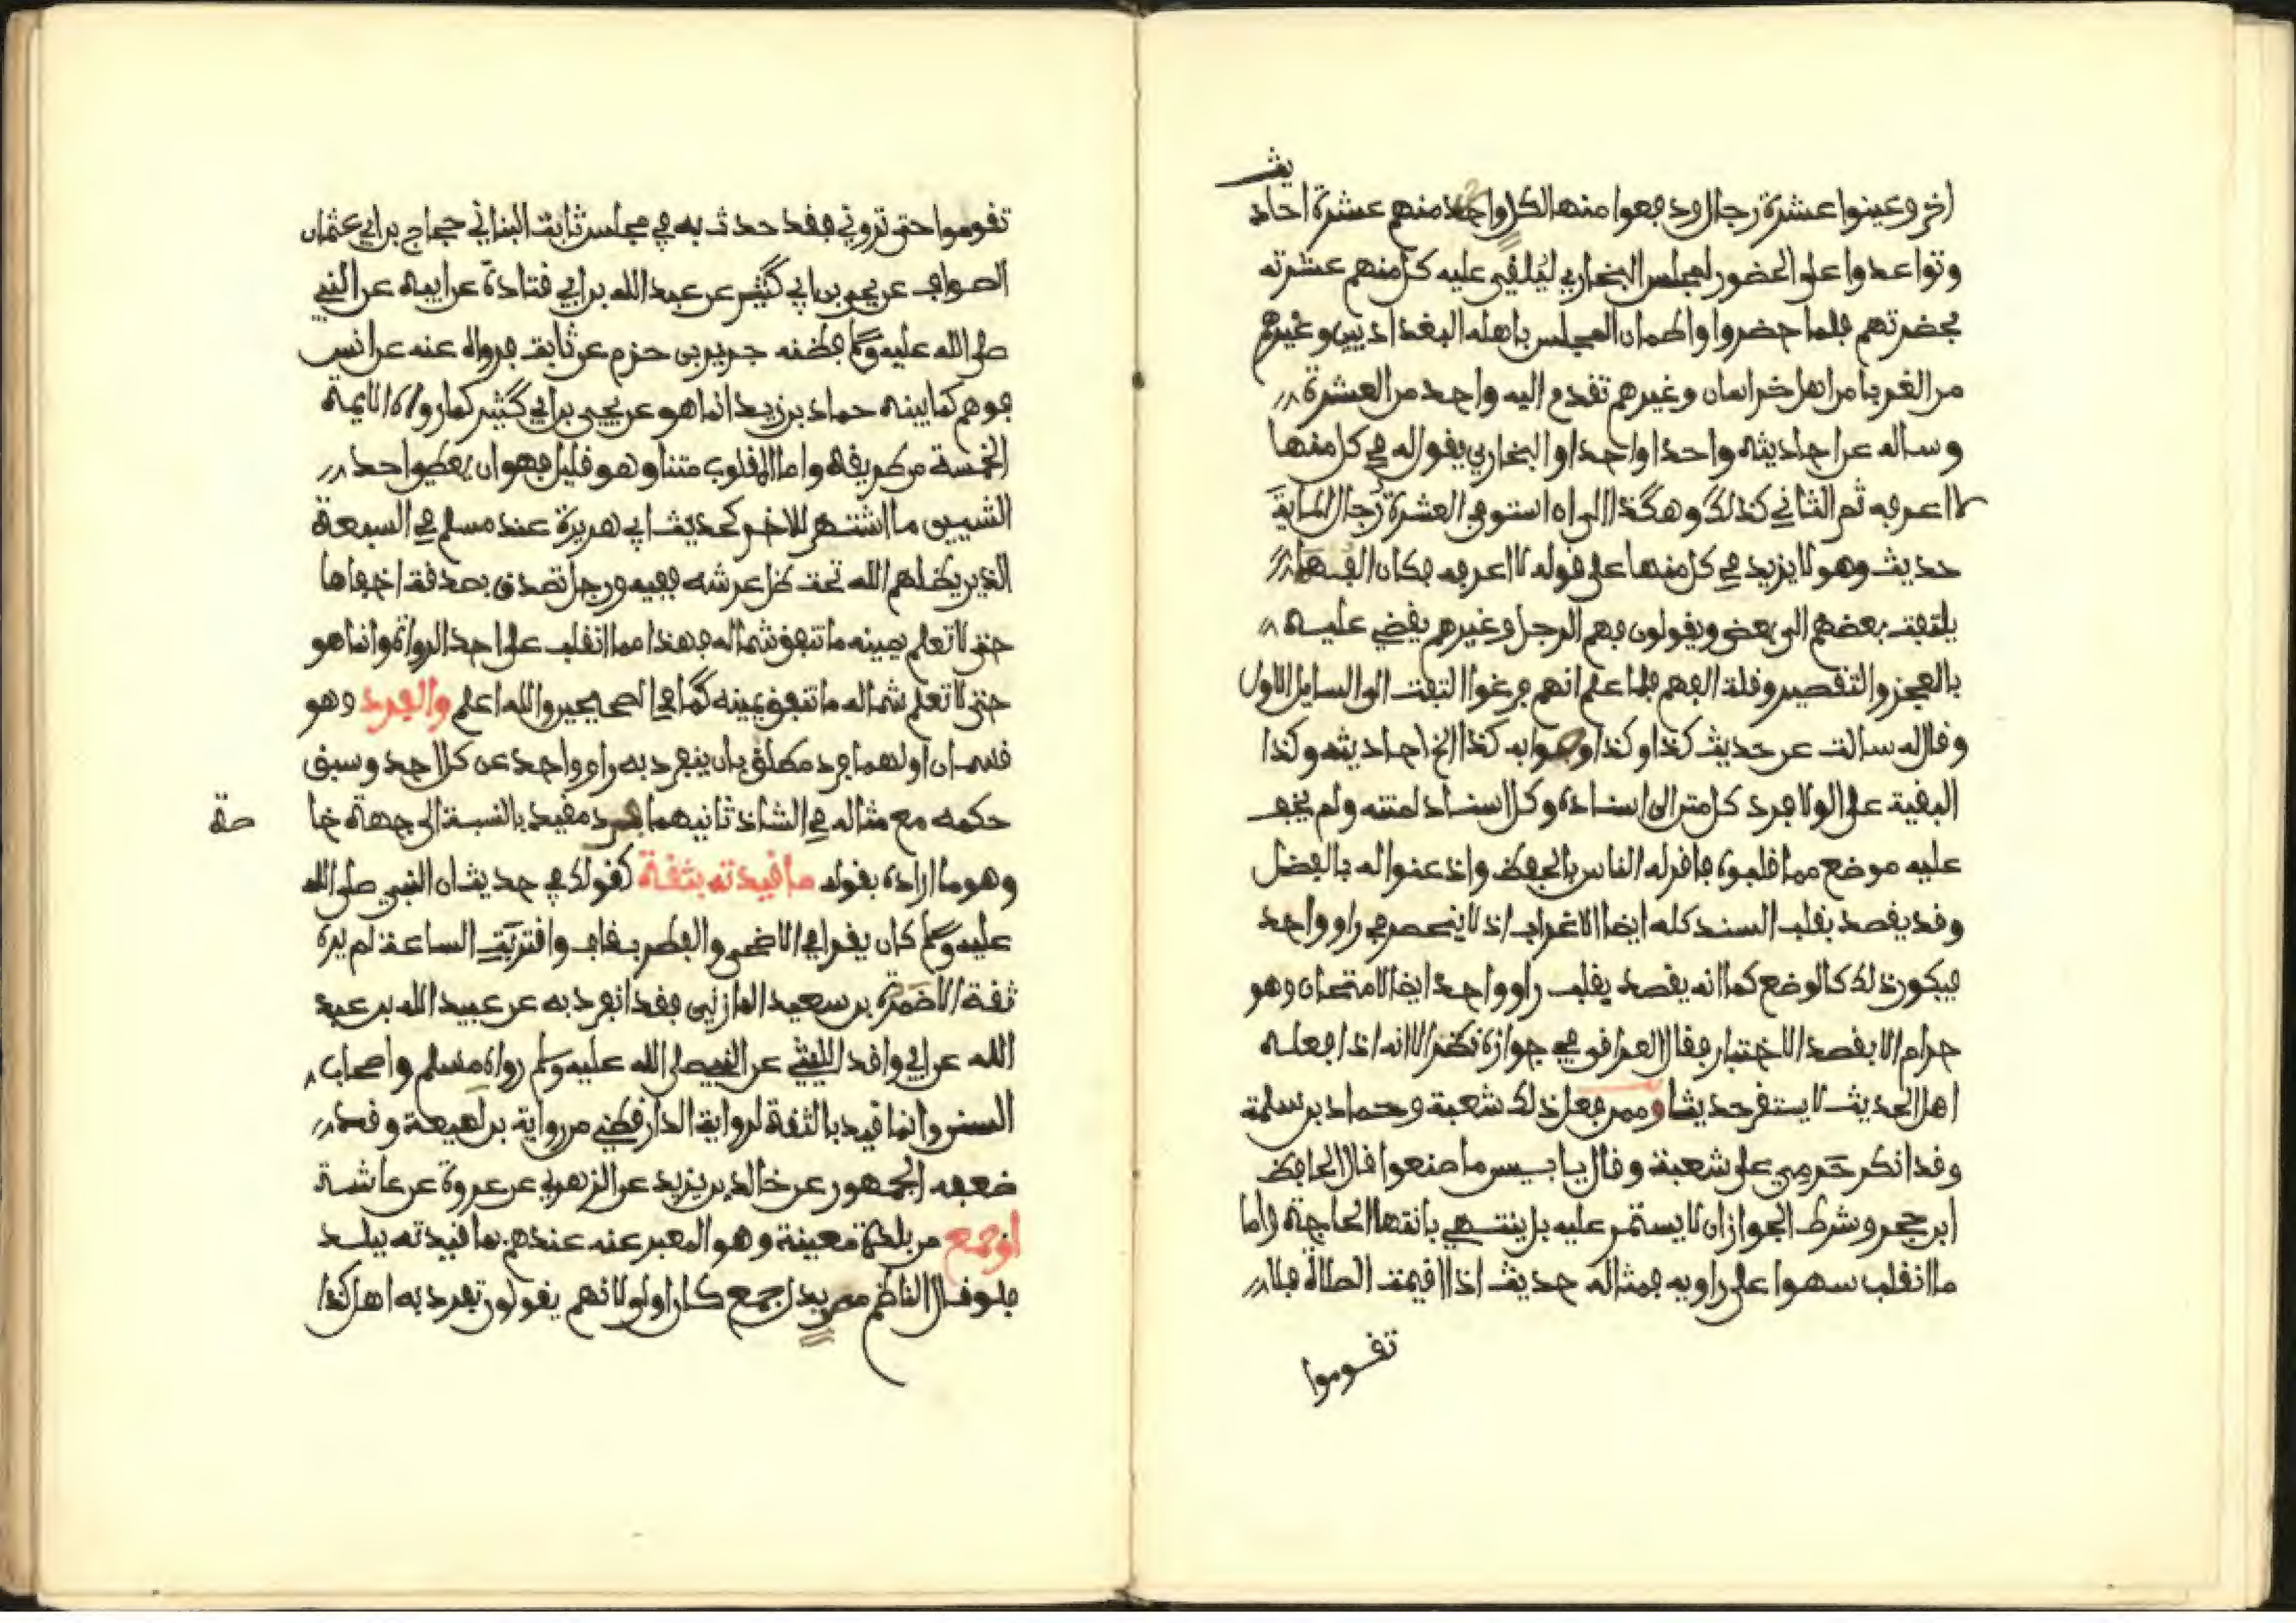 اخر وعينوا عشرة رجال ودفعوا منها لكل واحد منهم عشرة احاد
يث
وتواعدوا على الحضور لمجلس البخاري ليُلقي عليه كل منهم عشرته
بحضرتهم فلما حضروا واطمان المجلس باهله البغداديين وغيرهم
من الغربا من اهل خراسان وغيرهم تقدم اليه واحد من العشرة
وساله عن احاديثه واحدا واحدا والبخاري يقول له في كل منها
لا اعرفه ثم الثاني كذلك وهكذا الى ان استوفى العشرة رجال الماية
حديث وهو لا يزيد في كل منها على قوله لا اعرفه فكان الفهما
يلتفت بعضهم الى بعض ويقولون فهم الرجل وغيرهم يقضي عليه
بالعجز والتقصير وقلة الفهم فلما علم انهم فرغوا التفت الى السايل الاول
وقال له سالت عن حديث كذا وكذا وصوابه كذا الخ احاديثه وكذا
البقية على الولا فرد كل متن الى اسناده وكل اسناد لمتنه ولم يخف
عليه موضع مما قلبوه فاقر له الناس بالحفظ واذعنوا له بالفضل
وقد يقصد بقلب السند كله ايضا الاغراب اذ لا ينحصر في راو واحد
فيكون ذلك كالوضع كما انه يقصد بقلب راو واحد ايضا الامتحان وهو
حرام الا بقصد الاختبار فقال العراقي في جوازه نظر الا انه اذا فعله
اهل الحديث لا يستقر حديثا وممن فعل ذلك شعبة وحماد بن سلمة
وقد انكر حَرمي على شعبة وقال يا بيس ما صنعوا قال الحافظ
ابن حجر وشرط الجواز ان لا يستمر عليه بل ينتهي بانتها الحاجة واما
ما انقلب سهوا على راويه فمثاله حديث اذا اقيمت الصلاة فلا
تقوموا
تقوموا حتى تروني فقد حدث به في مجلس ثابت البناني حجاج بن ابي عثمان
الصواف عن يحيى بن ابي كثير عن عبد الله بن ابي قتادة عن ابيه عن النبي
صلى الله عليه وسلم فظنه جرير بن حزم عن ثابت فرواه عنه عن انس
فوهم كما بينه حماد بن زيد انما هو عن يحيى بن ابي كثير كما رواه الايمة
الخمسة من طريقه واما المقلوب متنا وهو قليل فهو ان يعطي احد
الشييين ما اشتهر للاخر كحديث ابي هريرة عند مسلم في السبعة
الذين يظلهم الله تحت ظل عرشه ففيه ورجل تصدق بصدقة اخفاها
حتى لا تعلم يمينه ما تنفق شماله فهذا مما انقلب على احد الرواة وانما هو
حتى لا تعلم شماله ما تنفق يمينه كما في الصحيحين والله اعلم والفرد وهو
قسمان اولهما فرد مطلق بان ينفرد به راو واحد عن كل احد وسبق
حكمه مع مثاله في الشاذ ثانيهما فرد مقيد بالنسبة الى جهة خا
صة
وهو ما اراده بقوله ما قيدته بثقة كقولك في حديث ان النبي صلى الله
عليه وسلم كان يقرا في الاضحى والفطر بقاف واقتربت الساعة لم يره
ثقة الا ضمرة بن سعيد المازني فقد انفرد به عن عبيد الله بن عبد
الله عن ابي واقد الليثي عن النبي صلى الله عليه وسلم رواه مسلم واصحاب
السنن وانما قيد بالثقة لرواية الدارقطني من رواية بن لهيعة وقد
ضعفه الجمهور عن خالد بن يزيد عن الزهري عن عروة عن عائشة
او جمع من بلدة معينة وهو المعبر عنه عندهم بما قيدته ببلد
فلو قال الناظم مصر بدل جمع كان اولى لانهم يقولون تفرد به اهل كذا